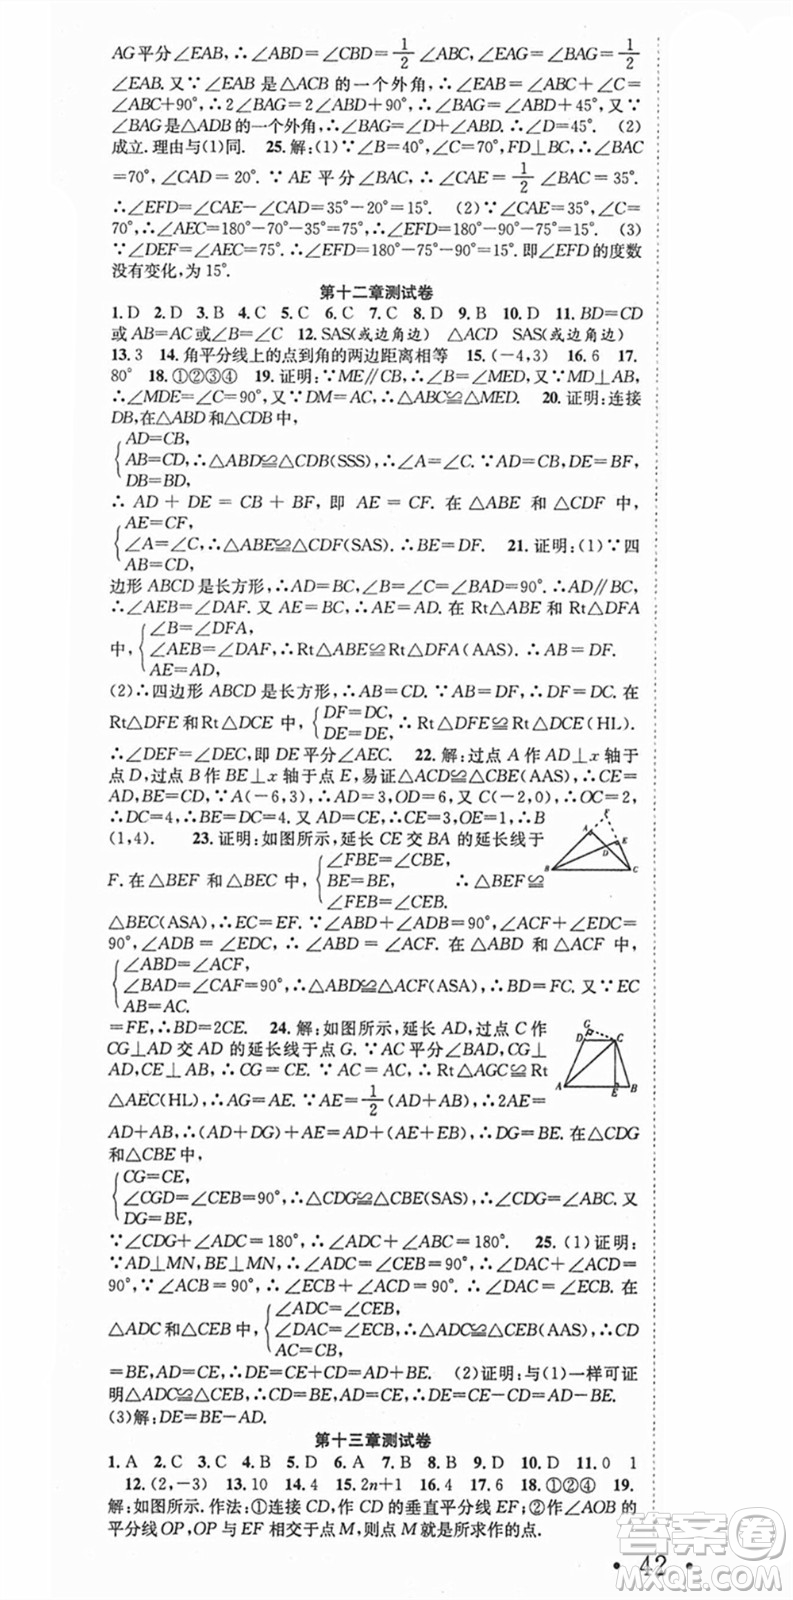 AG平分∠EAB,∴∠ABD=∠CBD=1/2∠ABC,∠EAG=∠BAG=1/2
∠EAB.又∵∠EAB是△ACB的一个外角,∴∠EAB=∠ABC+∠C=
∠ABC+90°,∴2∠BAG=2∠ABD+90°,∴∠BAG=∠ABD+45°,又∵
∠BAG是△ADB的一个外角,∴∠BAG=∠D+∠ABD.∴∠D=45°. (2)
成立.理由与(1)同. 25.解:(1)∵∠B=40°,∠C=70°,FD⊥BC,∴∠BAC
=70°,∠CAD=20°.∵AE平分∠BAC,∴∠CAE=1/2∠BAC=35°.
∴∠EFD=∠CAE-∠CAD=35°-20°=15°. (2)∵∠CAE=35°,∠C=
70°,∴∠AEC=180°-70°-35°=75°.∴∠EFD=180°-90°-75°=15°. (3)
∵∠DEF=∠AEC=75°.∴∠EFD=180°-75°-90°=15°.即∠EFD的度数
没有变化,为15°.
第十二章测试卷
1.D 2.D 3.B 4.C 5.C 6.C 7.C 8.D 9.B 10.D 11.BD=CD
或AB=AC或∠B=∠C 12.SAS(或边角边) △ACD SAS(或边角边)
13.3 14.角平分线上的点到角的两边距离相等 15.(-4,3) 16.6 17.
80° 18.①②③④ 19.证明:∵ME∥CB,∴∠B=∠MED,又∵MD⊥AB,
∴∠MDE=∠C=90°,又∵DM=AC,∴△ABC≌△MED. 20.证明:连接
DB,在△ABD和△CDB中,
AD=CB,
AB=CD,∴△ABD≌△CDB(SSS),∴∠A=∠C.∵AD=CB,DE=BF,
DB=BD,
∴AD+DE=CB+BF,即AE=CF.在△ABE和△CDF中,
AE=CF,
∠A=∠C,∴△ABE≌△CDF(SAS).∴BE=DF. 21.证明:(1)∵四
AB=CD,
边形ABCD是长方形,∴AD=BC,∠B=∠C=∠BAD=90°.∴AD∥BC,
∴∠AEB=∠DAF.又AE=BC,∴AE=AD.在Rt△ABE和Rt△DFA
∠B=∠DFA,
中,∠AEB=∠DAF,∴Rt△ABE≌Rt△DFA(AAS).∴AB=DF.
AE=AD,
(2)∵四边形ABCD是长方形,∴AB=CD.∵AB=DF,∴DF=DC.在
Rt△DFE和Rt△DCE中,DF=DC,∴Rt△DFE≌Rt△DCE(HL).
DE=DE,
∴∠DEF=∠DEC,即DE平分∠AEC. 22.解:过点A作AD⊥x轴于
点D,过点B作BE⊥x轴于点E,易证△ACD≌△CBE(AAS),∴CE=
AD,BE=CD,∵A(-6,3),∴AD=3,OD=6,又C(-2,0),∴OC=2,
∴DC=4,∴BE=DC=4.又AD=CE,∴CE=3,OE=1,∴B
(1,4). 23.证明:如图所示,延长CE交BA的延长线于
∠FBE=∠CBE,
F.在△BEF和△BEC中,BE=BE, ∴△BEF≌
∠FEB=∠CEB.
△BEC(ASA),∴EC=EF.∵∠ABD+∠ADB=90°,∠ACF+∠EDC=
90°,∠ADB=∠EDC,∴∠ABD=∠ACF.在△ABD和△ACF中,
∠ABD=∠ACF,
∠BAD=∠CAF=90°,∴△ABD≌△ACF(ASA),∴BD=FC.又∵EC
AB=AC.
=FE,∴BD=2CE. 24.解:如图所示,延长AD,过点C作
CG⊥AD交AD的延长线于点G.∵AC平分∠BAD,CG⊥
AD,CE⊥AB,∴CG=CE.∵AC=AC,∴Rt△AGC≌Rt
△AEC(HL),∴AG=AE.∵AE=1/2(AD+AB),∴2AE=
AD+AB,∴(AD+DG)+AE=AD+AE+EB,∴DG=BE.在△CDG
和△CBE中,
CG=CE,
∠CGD=∠CEB=90°,∴△CDG≌△CBE(SAS),∴∠CDG=∠ABC.又
DG=BE,
∵∠CDG+∠ADC=180°,∴∠ADC+∠ABC=180°. 25.(1)证明:
∵AD⊥MN,BE⊥MN,∴∠ADC=∠CEB=90°,∴∠DAC+∠ACD=
90°,∵∠ACB=90°,∴∠ECB+∠ACD=90°.∴∠DAC=∠ECB.在
∠ADC=∠CEB,
△ADC和△CEB中,∠DAC=∠ECB,∴△ADC≌△CEB(AAS),∴CD
AC=CB.
=BE,AD=CE,∴DE=CE+CD=AD+BE. (2)证明:与(1)一样可证
明△ADC≌△CEB,∴CD=BE,AD=CE,∴DE=CE-CD=AD-BE.
(3)解:DE=BE-AD.
第十三章测试卷
1.A 2.C 3.C 4.B 5.D 6.A 7.B 8.B 9.D 10.D 11.0 1
12.(2,-3) 13.10 14.4 15.2n+1 16.4 17.6 18.①②④ 19.
解:如图所示.作法:①连接CD,作CD的垂直平分线EF;②作∠AOB的
平分线OP,OP与EF相交于点M,则点M就是所求作的点.
F
A
E
D
B
C
G
D
C
A
E
B
42
答案圈
MXQE.COM